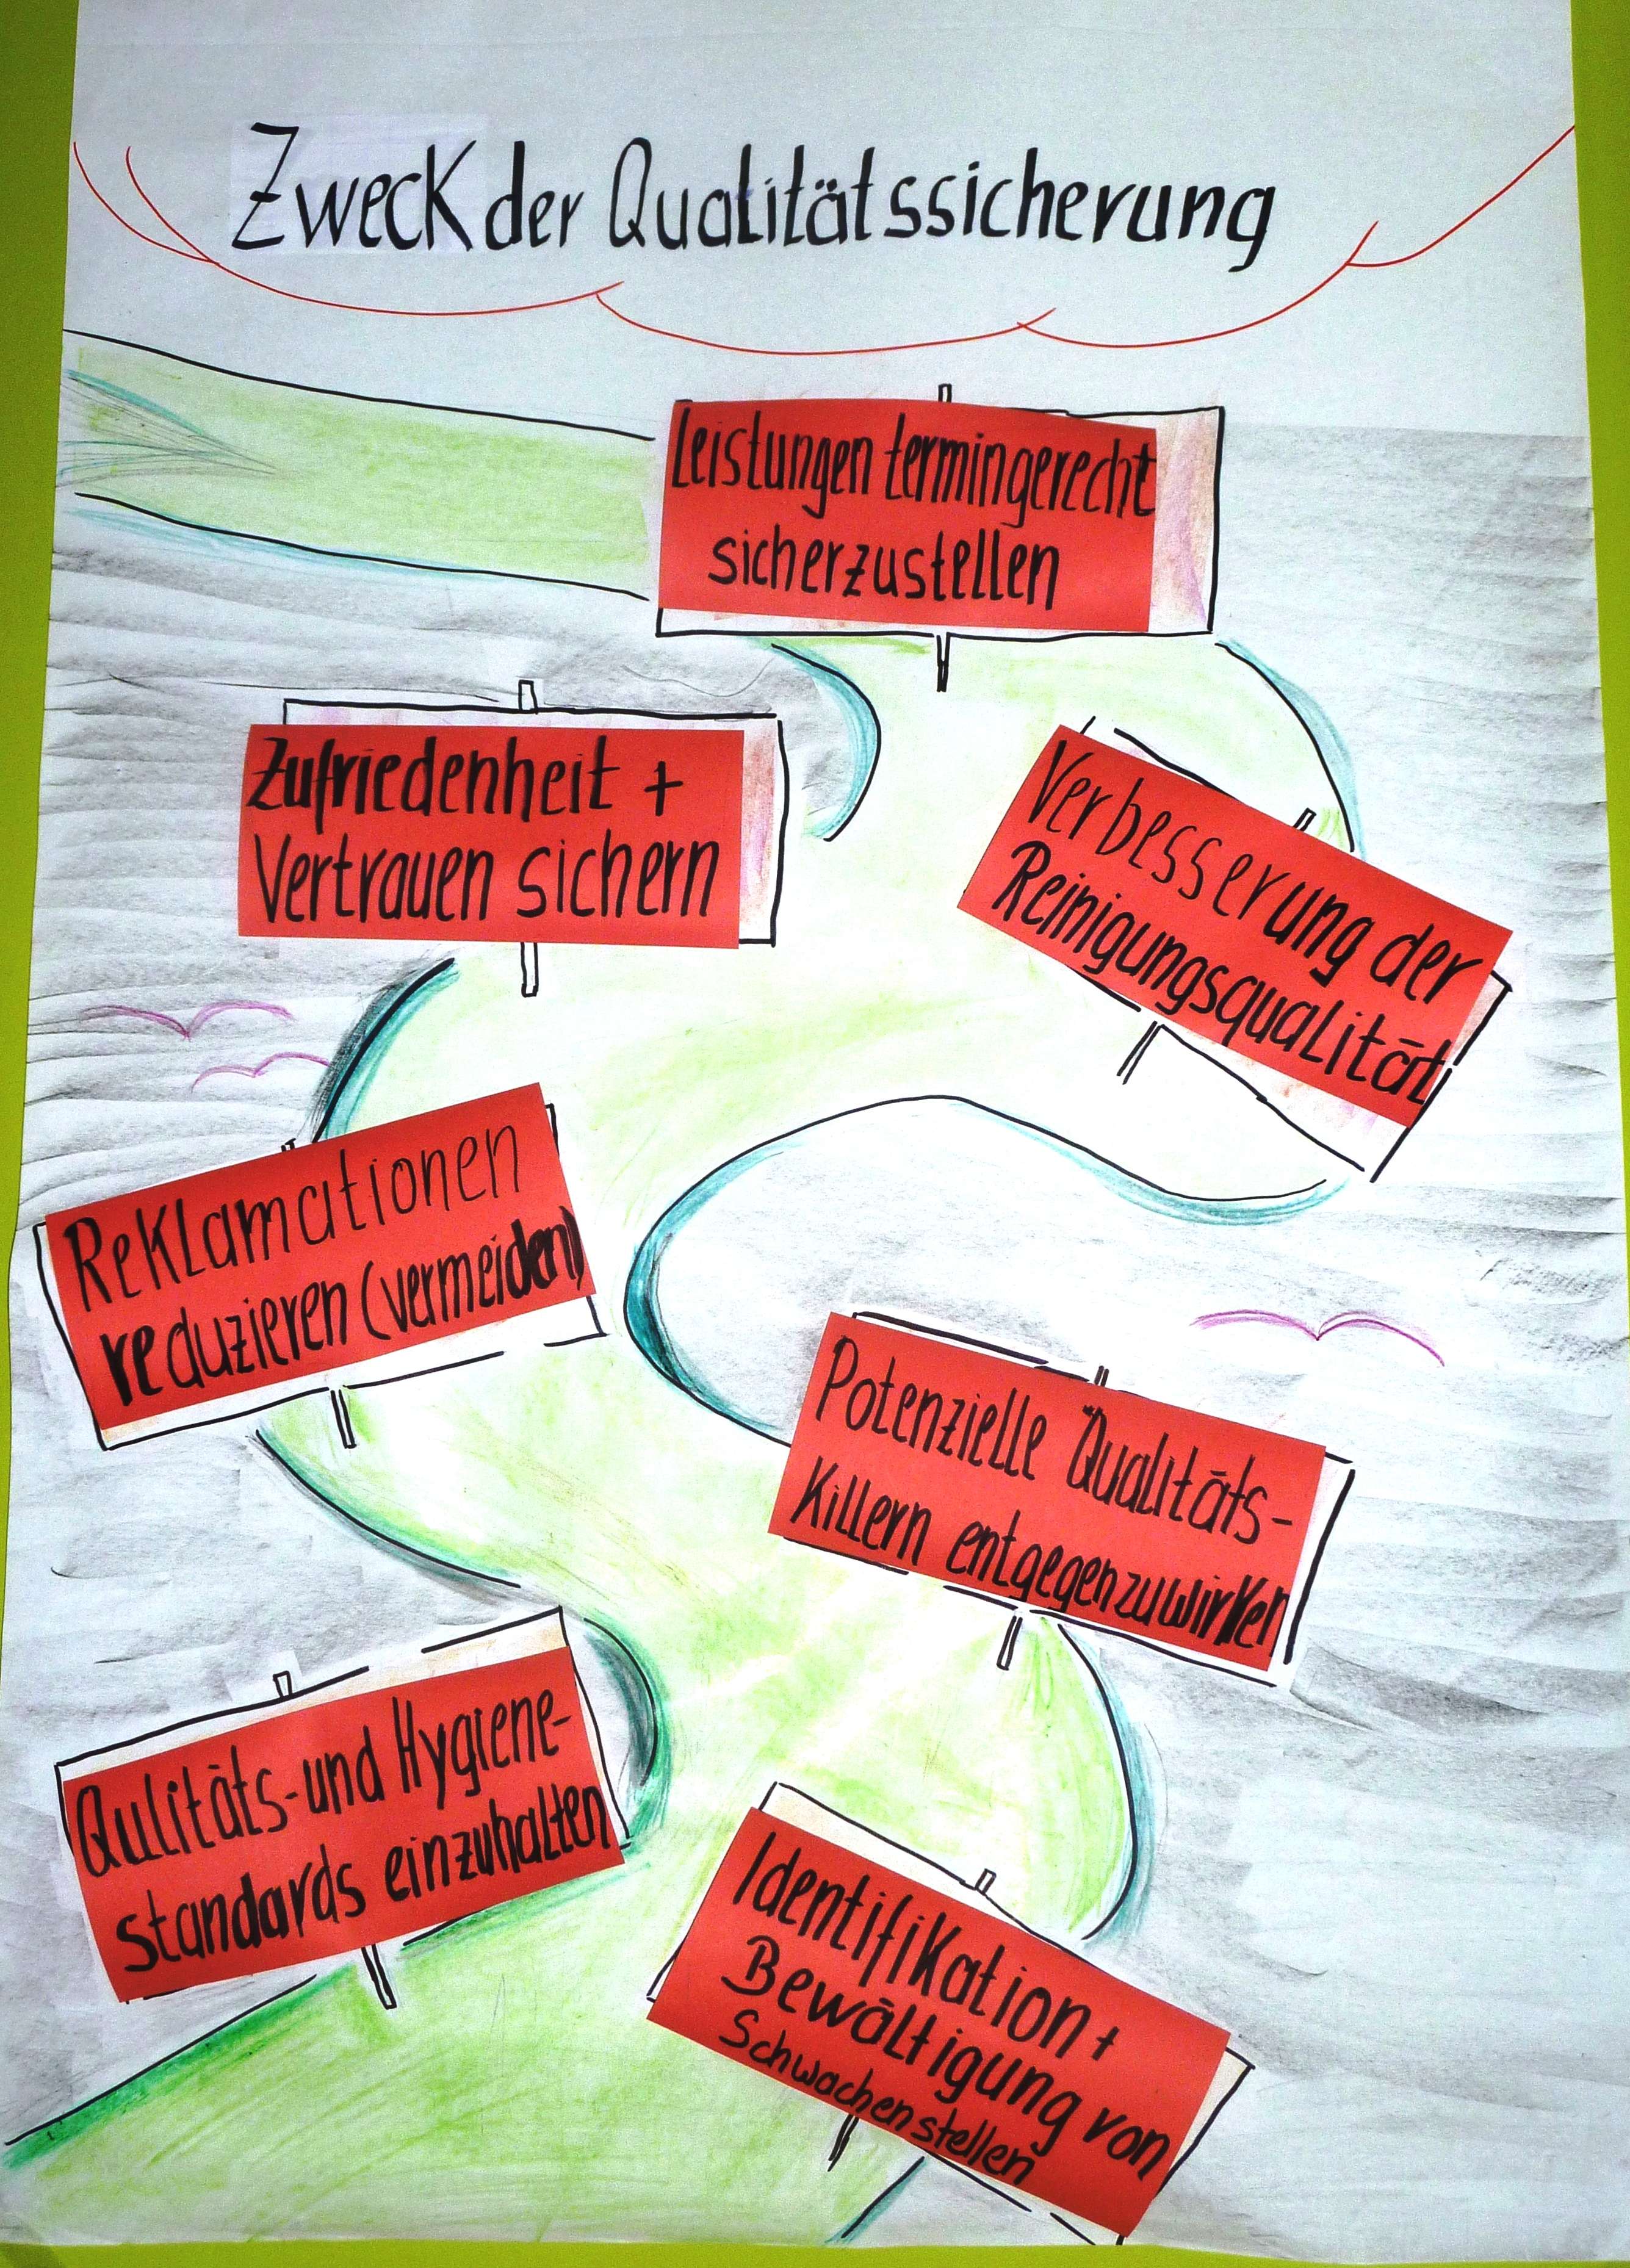 Zweck der Qualitätssicherung
Leistungen termingerecht
sicherzustellen
Zufriedenheit +
Vertrauen sichern
Verbesserung der
Reinigungsqualität
Reklamationen
reduzieren (vermeiden)
Potenzielle Qualitäts-
Killern entgegenzuwirken
Qulitäts- und Hygiene-
standards einzuhalten
Identifikation +
Bewältigung von
Schwachenstellen